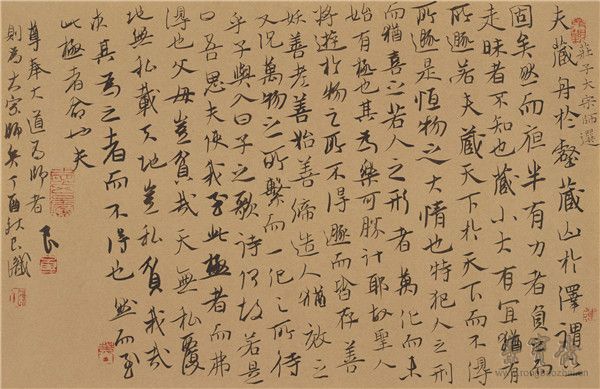 莊子大宗師選
夫藏舟於壑藏山於澤謂
固矣然而夜半有力者負之
走昧者不知也藏小大有宜猶有
所遯若夫藏天下於天下而不得
所遯是恒物之大情也特犯人之形
而猶喜之若人之形者萬化而未
始有極也其為樂可勝計耶故聖人
將遊於物之所不得遯而皆存善
妖善老善始善人猶放之
又況萬物之所繫而一化之所待
乎子輿入曰子之歌詩何故若是
曰吾思夫使我至此極者而弗
得也父母豈貧哉天無私覆
地無私載天地豈私貧我哉
求其為之者而不得也然而至
此極者命也夫
尊奉大道為師者
則為大宗師矣丁酉秋識